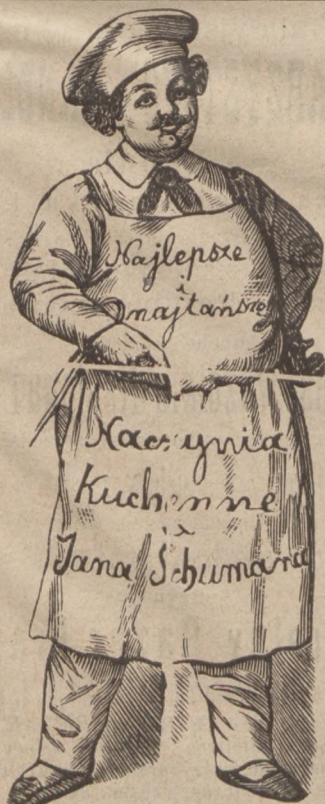 Najlepsze
i
najtańsze
Naczynia
Kuchenne
Jana Schumana